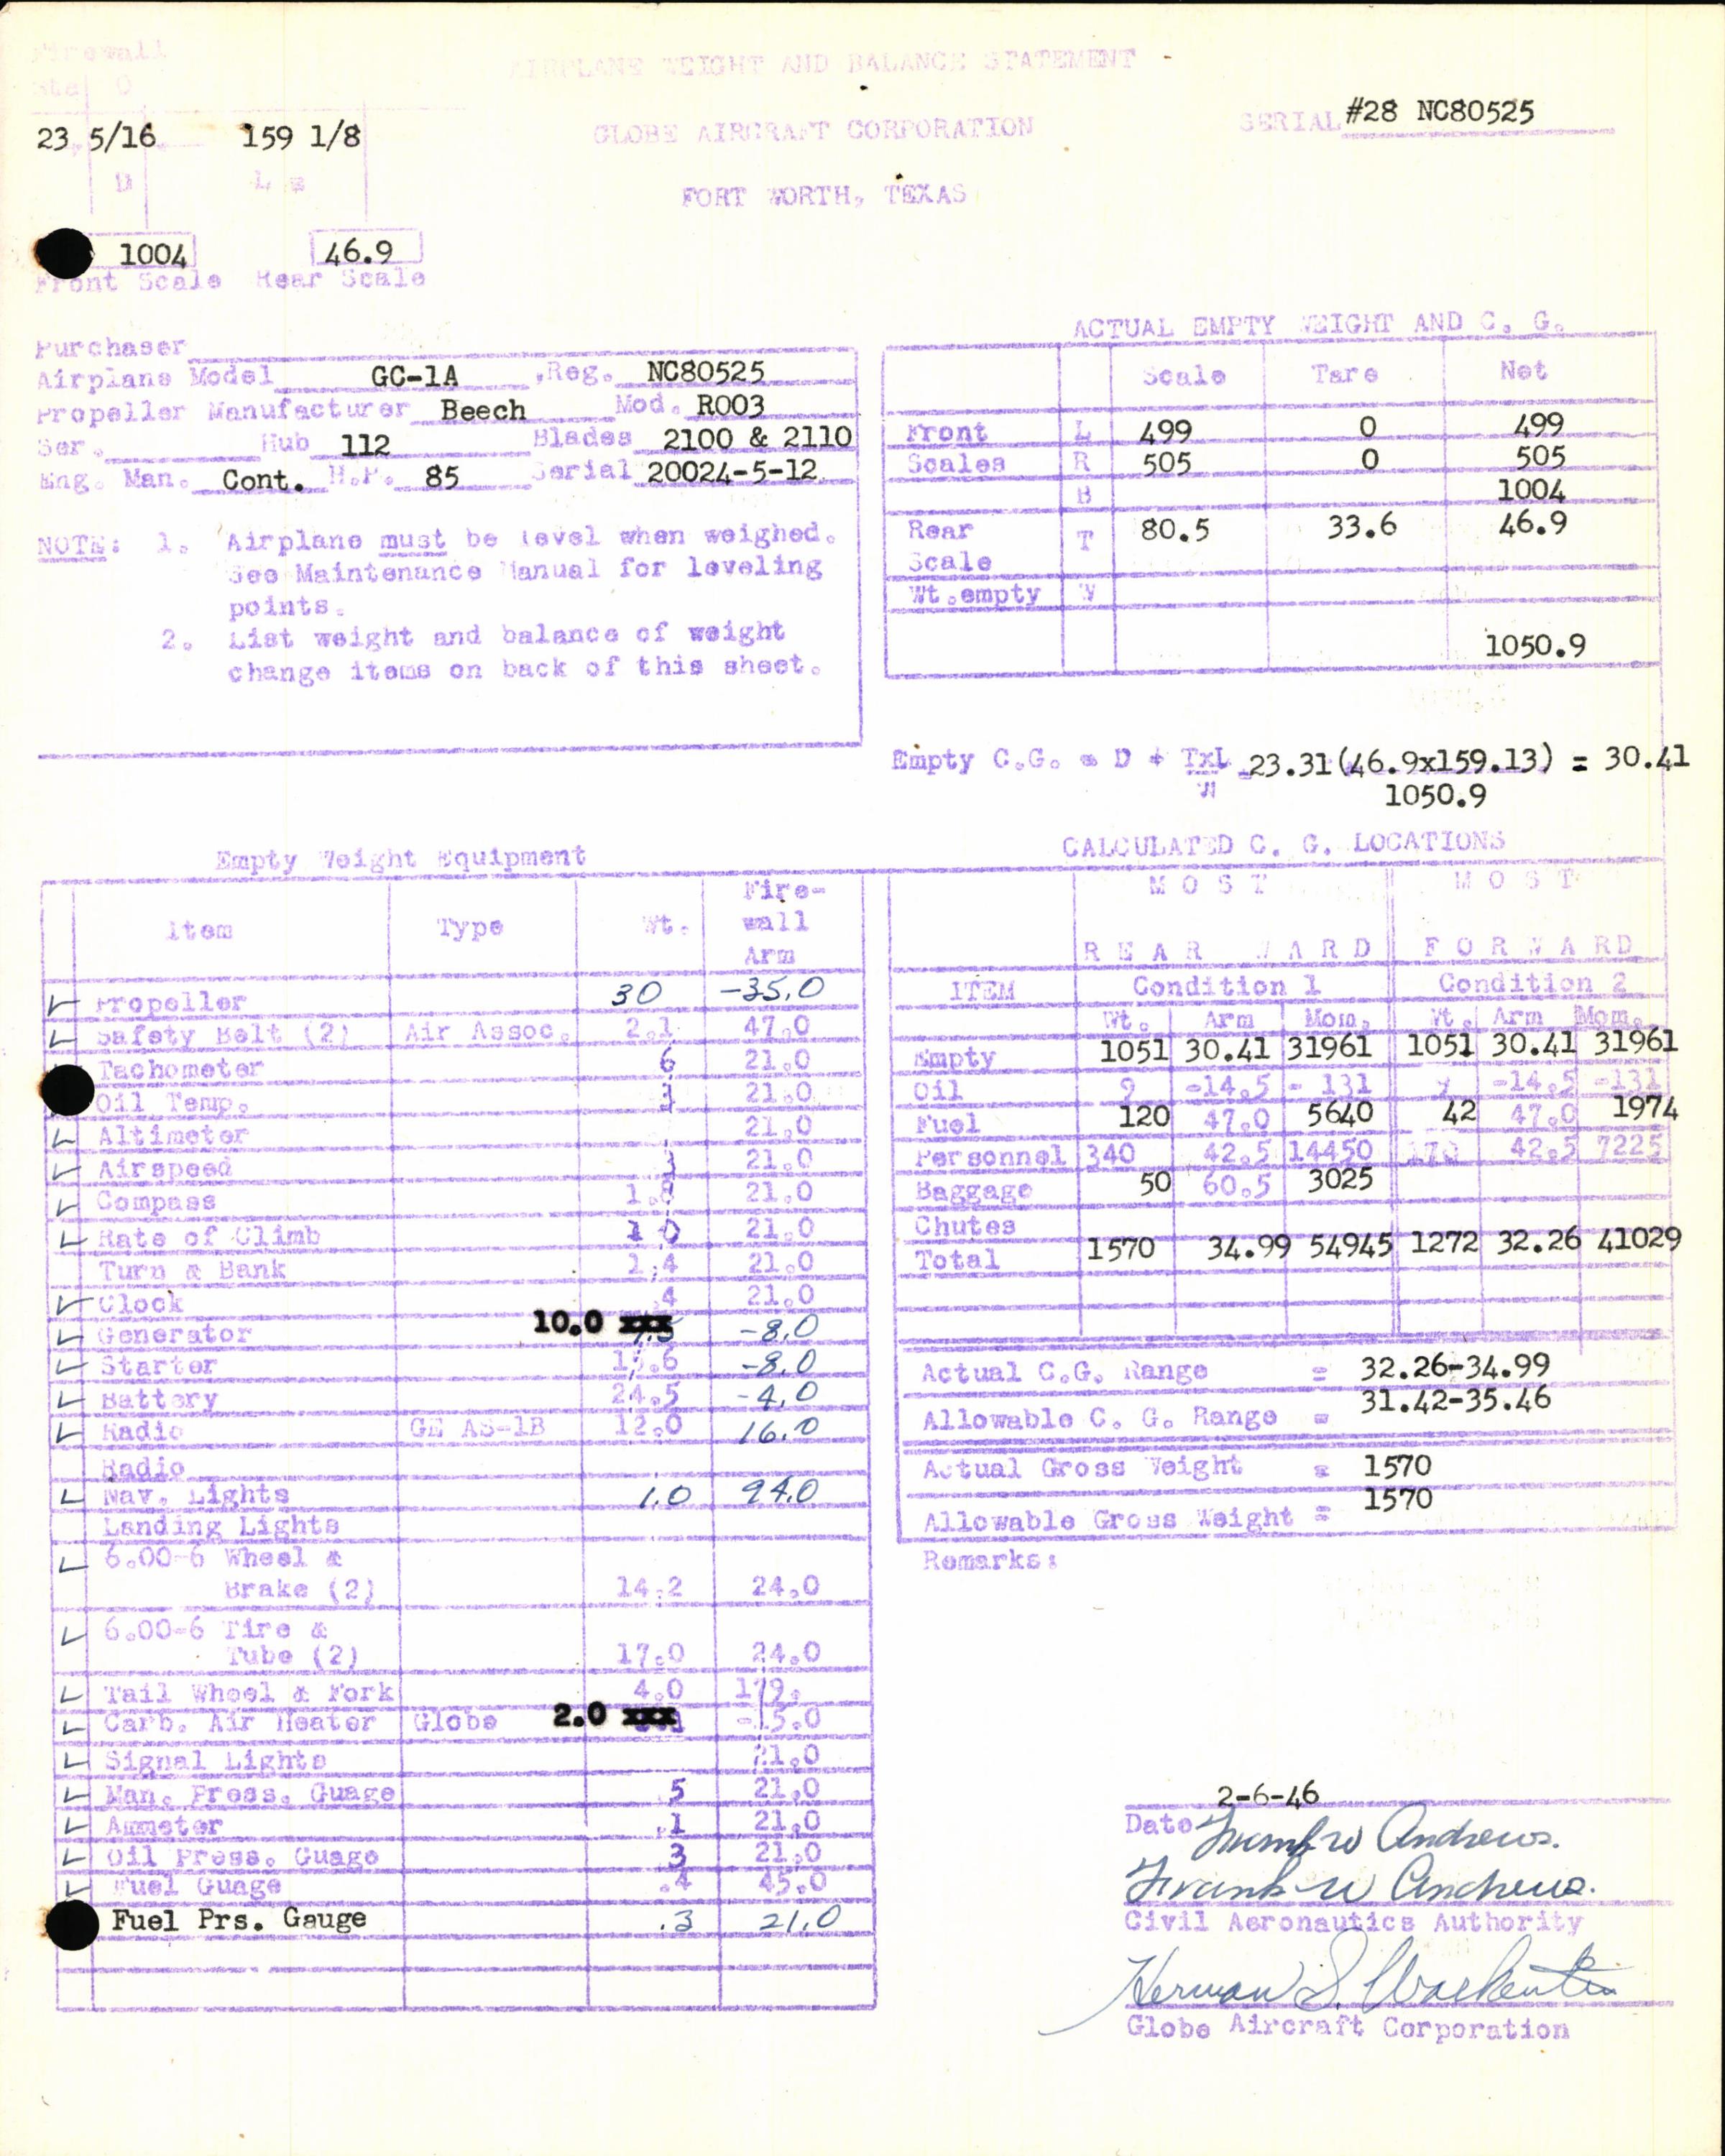 Firewall
Sta 0
AIRPLANE WEIGHT AND BALANCE STATEMENT
23 5/16 159 1/8
D L =
GLOBE AIRCRAFT CORPORATION
SERIAL #28 NC80525
FORT WORTH, TEXAS
1004 46.9
Front Scale Rear Scale
Purchaser
Airplane Model GC-1A ,Reg. NC80525
Propeller Manufacturer Beech Mod. R003
Ser. Hub 112 Blades 2100 & 2110
Eng. Man. Cont. H.P. 85 Serial 20024-5-12
NOTE: 1. Airplane must be level when weighed.
See Maintenance Manual for leveling
points.
2. List weight and balance of weight
change items on back of this sheet.
ACTUAL EMPTY WEIGHT AND C. G.
Scale Tare Net
Front L 499 0 499
Scales R 505 0 505
B 1004
Rear T 80.5 33.6 46.9
Scale
Wt.empty W
1050.9
Empty C.G. = D + TxL 23.31(46.9x159.13) = 30.41
W 1050.9
Empty Weight Equipment
Item Type Wt. Fire-
wall
Arm
Propeller 30 -35.0
Safety Belt (2) Air Assoc. 2.1 47.0
Tachometer 6 21.0
Oil Temp. 21.0
Altimeter 21.0
Airspeed 21.0
Compass 21.0
Rate of Climb 1 0 21.0
Turn & Bank 2.4 21.0
Clock .4 21.0
Generator 10.0 xxx -8.0
Starter -8.0
Battery 24.5 -4.0
Radio GE AS-1B 12.0 16.0
Radio
Nav. Lights 1.0 94.0
Landing Lights
6.00-6 Wheel &
Brake (2) 14.2 24.0
6.00-6 Tire &
Tube (2) 17.0 24.0
Tail Wheel & Fork 4.0 179.
Carb. Air Heater Globe 2.0 xxx
Signal Lights 21.0
Man. Press. Guage .5 21.0
Ammeter .1 21.0
Oil Press. Guage .3 21.0
Fuel Guage .4 45.0
Fuel Prs. Gauge .3 21.0
CALCULATED C. G. LOCATIONS
M O S T M O S T
R E A R W A R D F O R W A R D
ITEM Condition 1 Condition 2
Wt. Arm Mom. Wt. Arm Mom.
Empty 1051 30.41 31961 1051 30.41 31961
Oil 9 -14.5 - 131 9 -14.5 -131
Fuel 120 47.0 5640 42 47.0 1974
Personnel 340 42.5 14450 170 42.5 7225
Baggage 50 60.5 3025
Chutes
Total 1570 34.99 54945 1272 32.26 41029
Actual C.G. Range = 32.26-34.99
Allowable C. G. Range = 31.42-35.46
Actual Gross Weight = 1570
Allowable Gross Weight = 1570
Remarks:
2-6-46
Date Frank W Andrews.
Frank W Andrews.
Civil Aeronautics Authority
Herman S.
Globe Aircraft Corporation